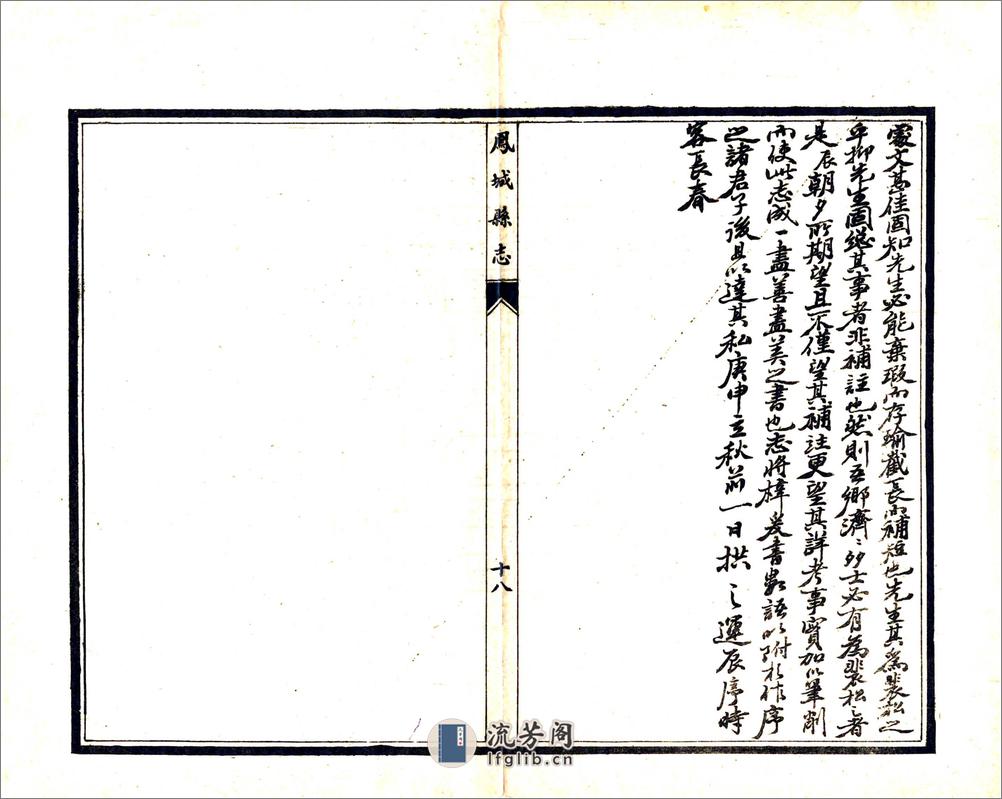 蒙文甚佳固知先生必能棄瑕而存瑜截長而補短也先生其為裴松之
乎抑先生固總其事者非補註也然則吾鄉濟〻多士必有為裴松之者
是辰朝夕所期望且不僅望其補註更望其詳考事實加以筆削
而使此志成一盡善盡美之書也志將梓爰書數語以附於作序
之諸君子後且以達其私庚申立秋前一日拱之運辰序時
客長春
鳳城縣志
十八
流芳阁
lfglib.cn